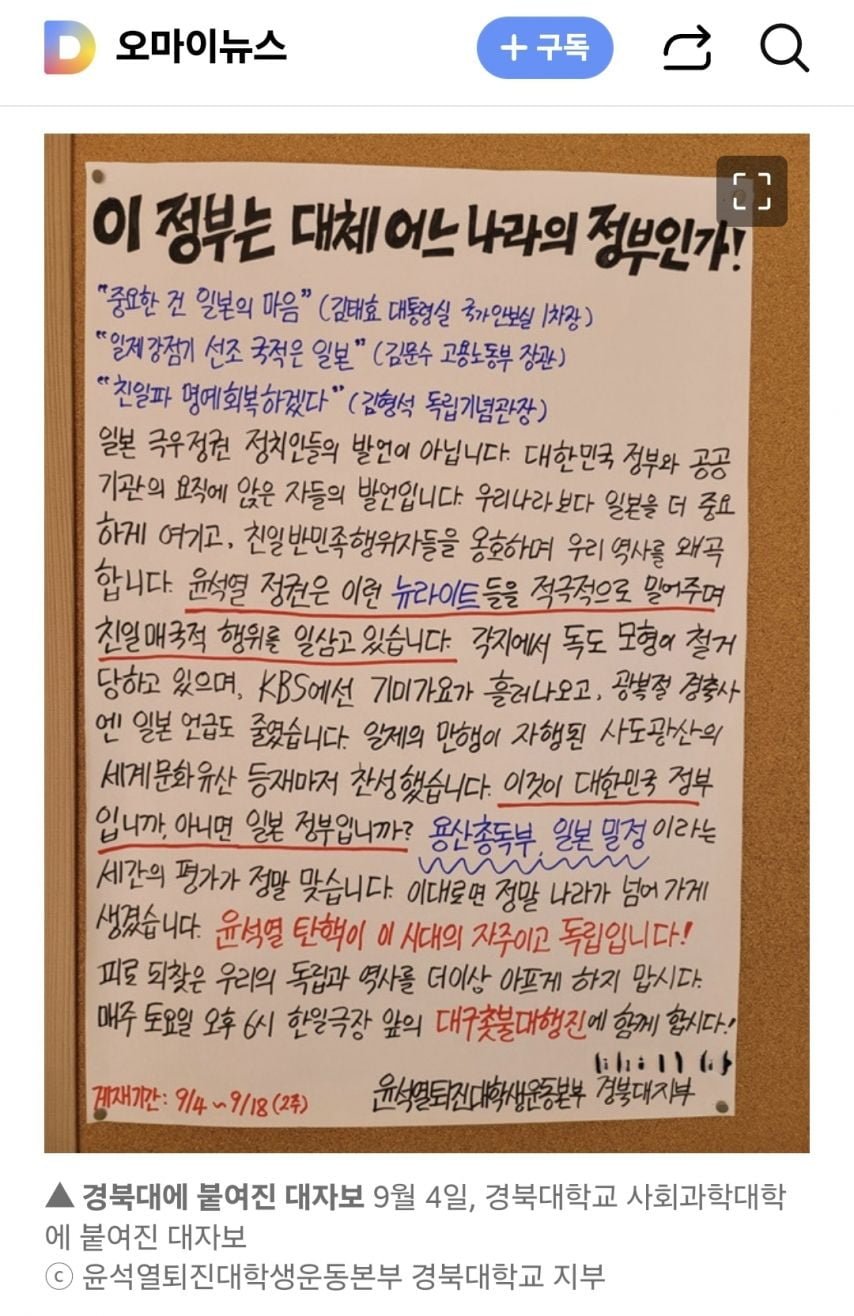 오마이뉴스
+ 구독
이 정부는 대체 어느 나라의 정부인가!
"중요한 건 일본의 마음" (김태효 대통령실 국가안보실 1차장)
"일제강점기 선조 국적은 일본" (김문수 고용노동부 장관)
"친일파 명예회복하겠다" (김형석 독립기념관장)
일본 극우정권 정치인들의 발언이 아닙니다. 대한민국 정부와 공공
기관의 요직에 앉은 자들의 발언입니다. 우리나라보다 일본을 더 중요
하게 여기고, 친일반민족행위자들을 옹호하며 우리 역사를 왜곡
합니다. 윤석열 정권은 이런 뉴라이트들을 적극적으로 밀어주며
친일매국적 행위를 일삼고 있습니다. 각지에서 독도 모형이 철거
당하고 있으며, KBS에선 기미가요가 흘러나오고, 광복절 경축사
엔 일본 언급도 줄였습니다. 일제의 만행이 자행된 사도광산의
세계문화유산 등재마저 찬성했습니다. 이것이 대한민국 정부
입니까, 아니면 일본 정부입니까? 용산총독부, 일본 밀정이라는
세간의 평가가 정말 맞습니다. 이대로면 정말 나라가 넘어가게
생겼습니다. 윤석열 탄핵이 이 시대의 자주이고 독립입니다!
피로 되찾은 우리의 독립과 역사를 더이상 아프게 하지 맙시다.
매주 토요일 오후 6시 한일극장 앞의 대구촛불대행진에 함께 합시다!
게재기간: 9/4 ~ 9/18 (2주)
윤석열퇴진대학생운동본부 경북대지부
▲ 경북대에 붙여진 대자보 9월 4일, 경북대학교 사회과학대학
에 붙여진 대자보
ⓒ 윤석열퇴진대학생운동본부 경북대학교 지부